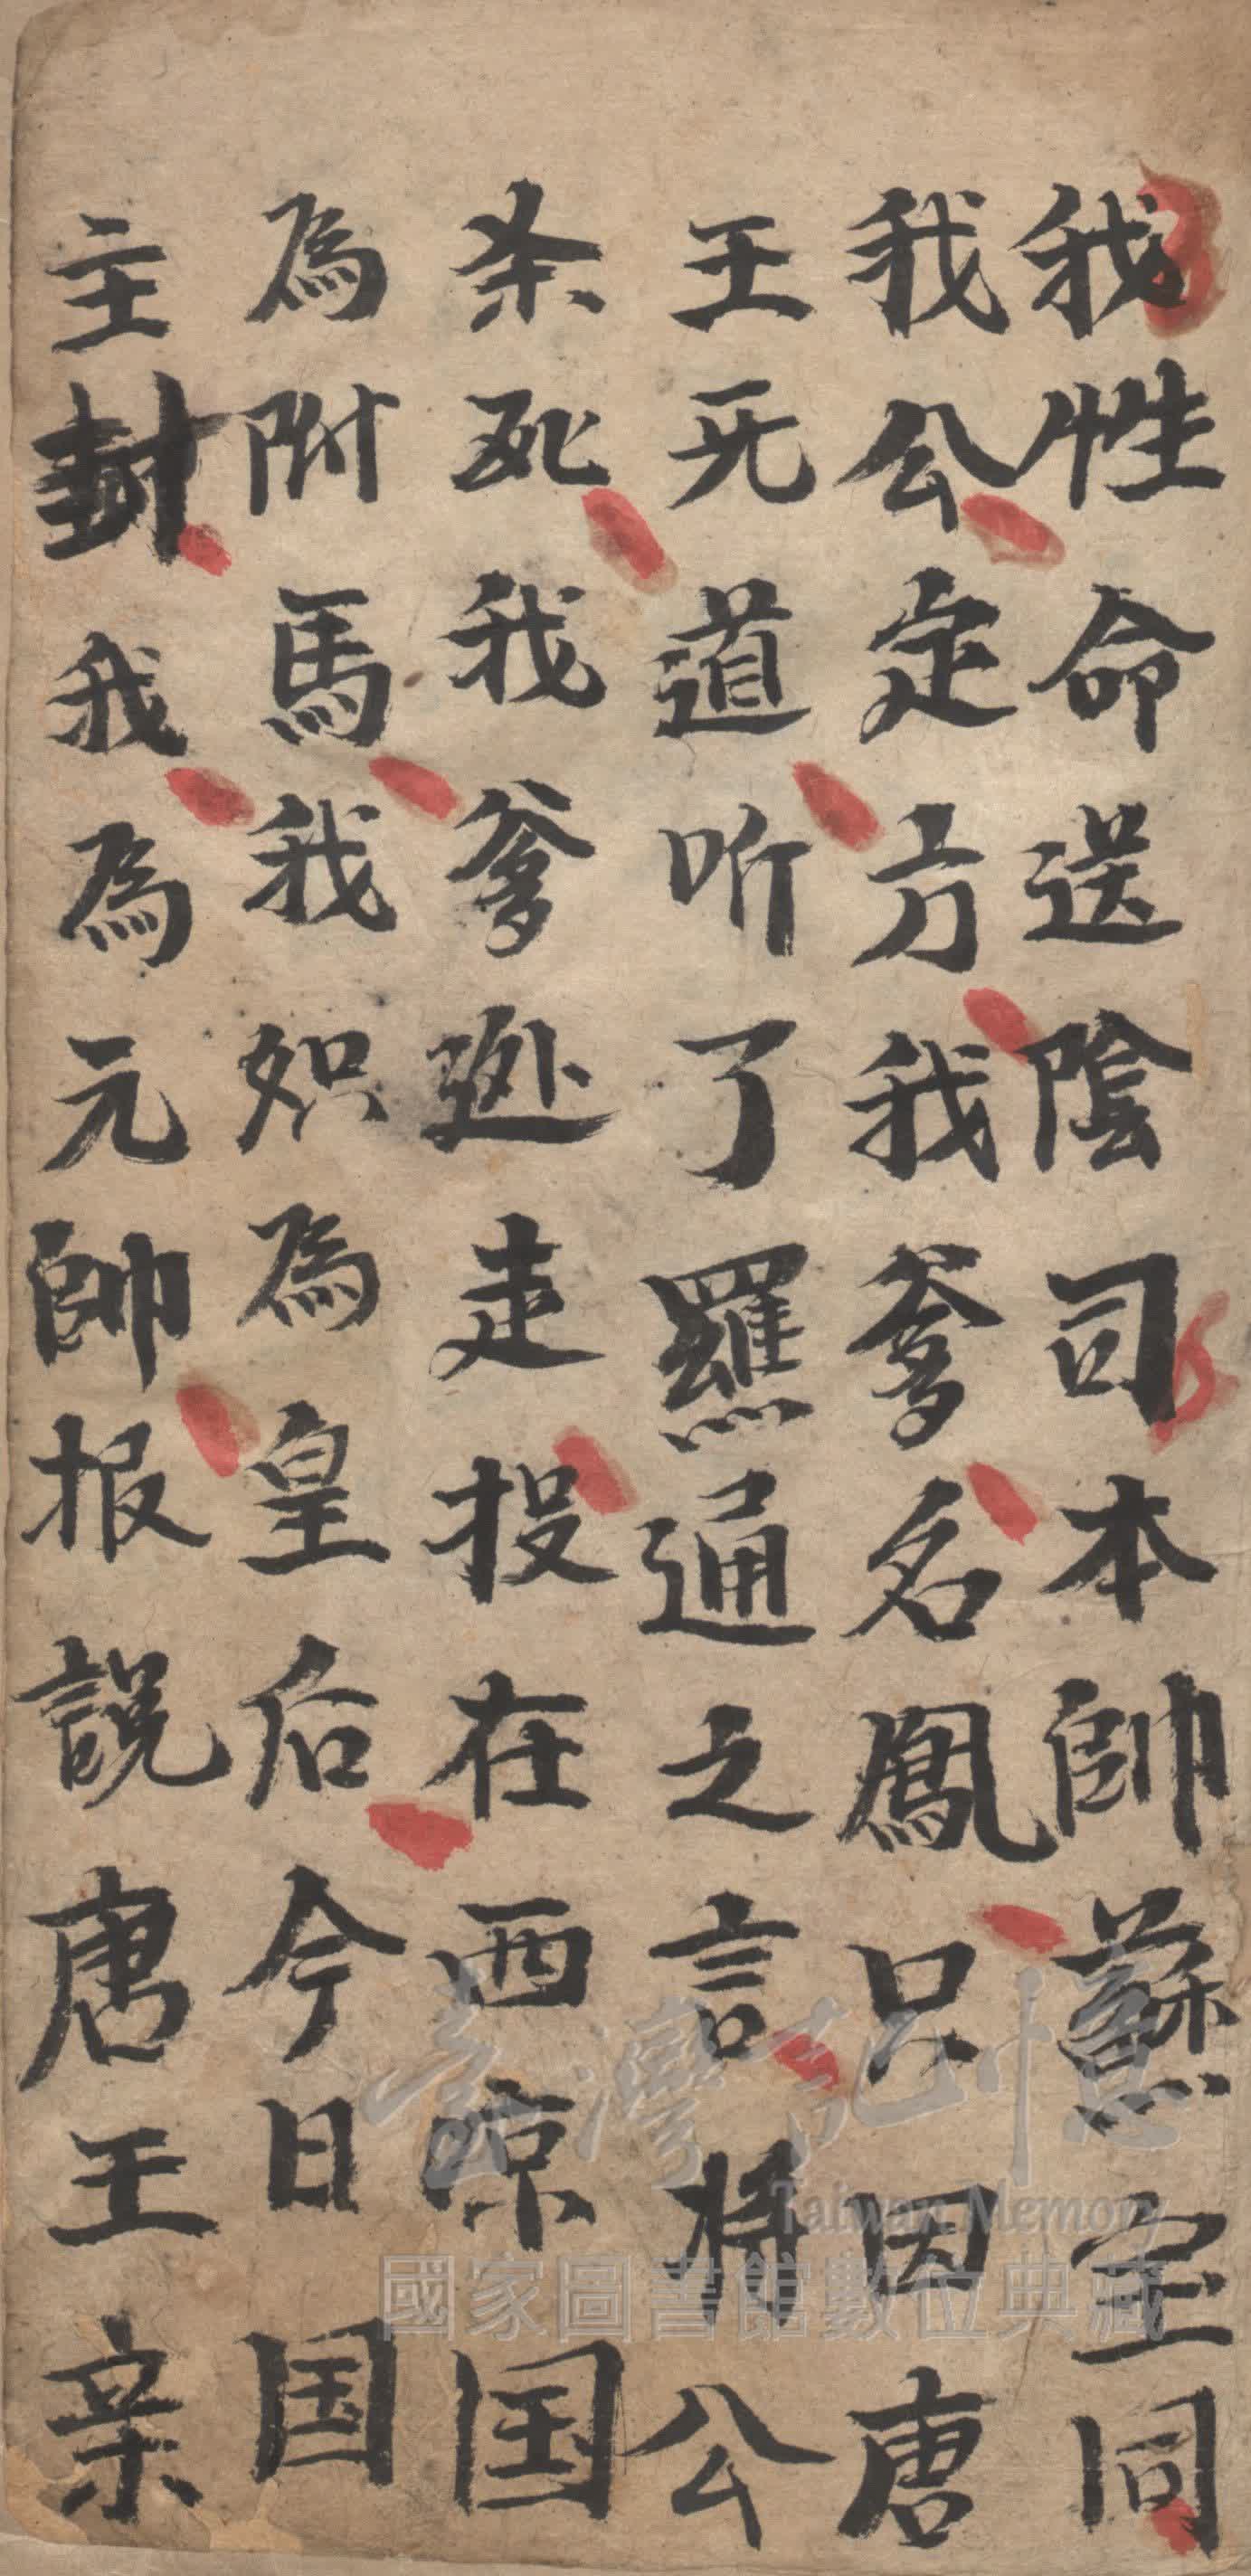 我性命送陰司本帥蘇宝同
我公定方我爹名鳳只因唐
王无道听了羅通之言将公
杀死我爹逃走投在西凉国
為附馬我姐為皇后今日国
主封我為元帥报説唐王亲
臺灣記憶
Taiwan Memory
國家圖書館數位典藏